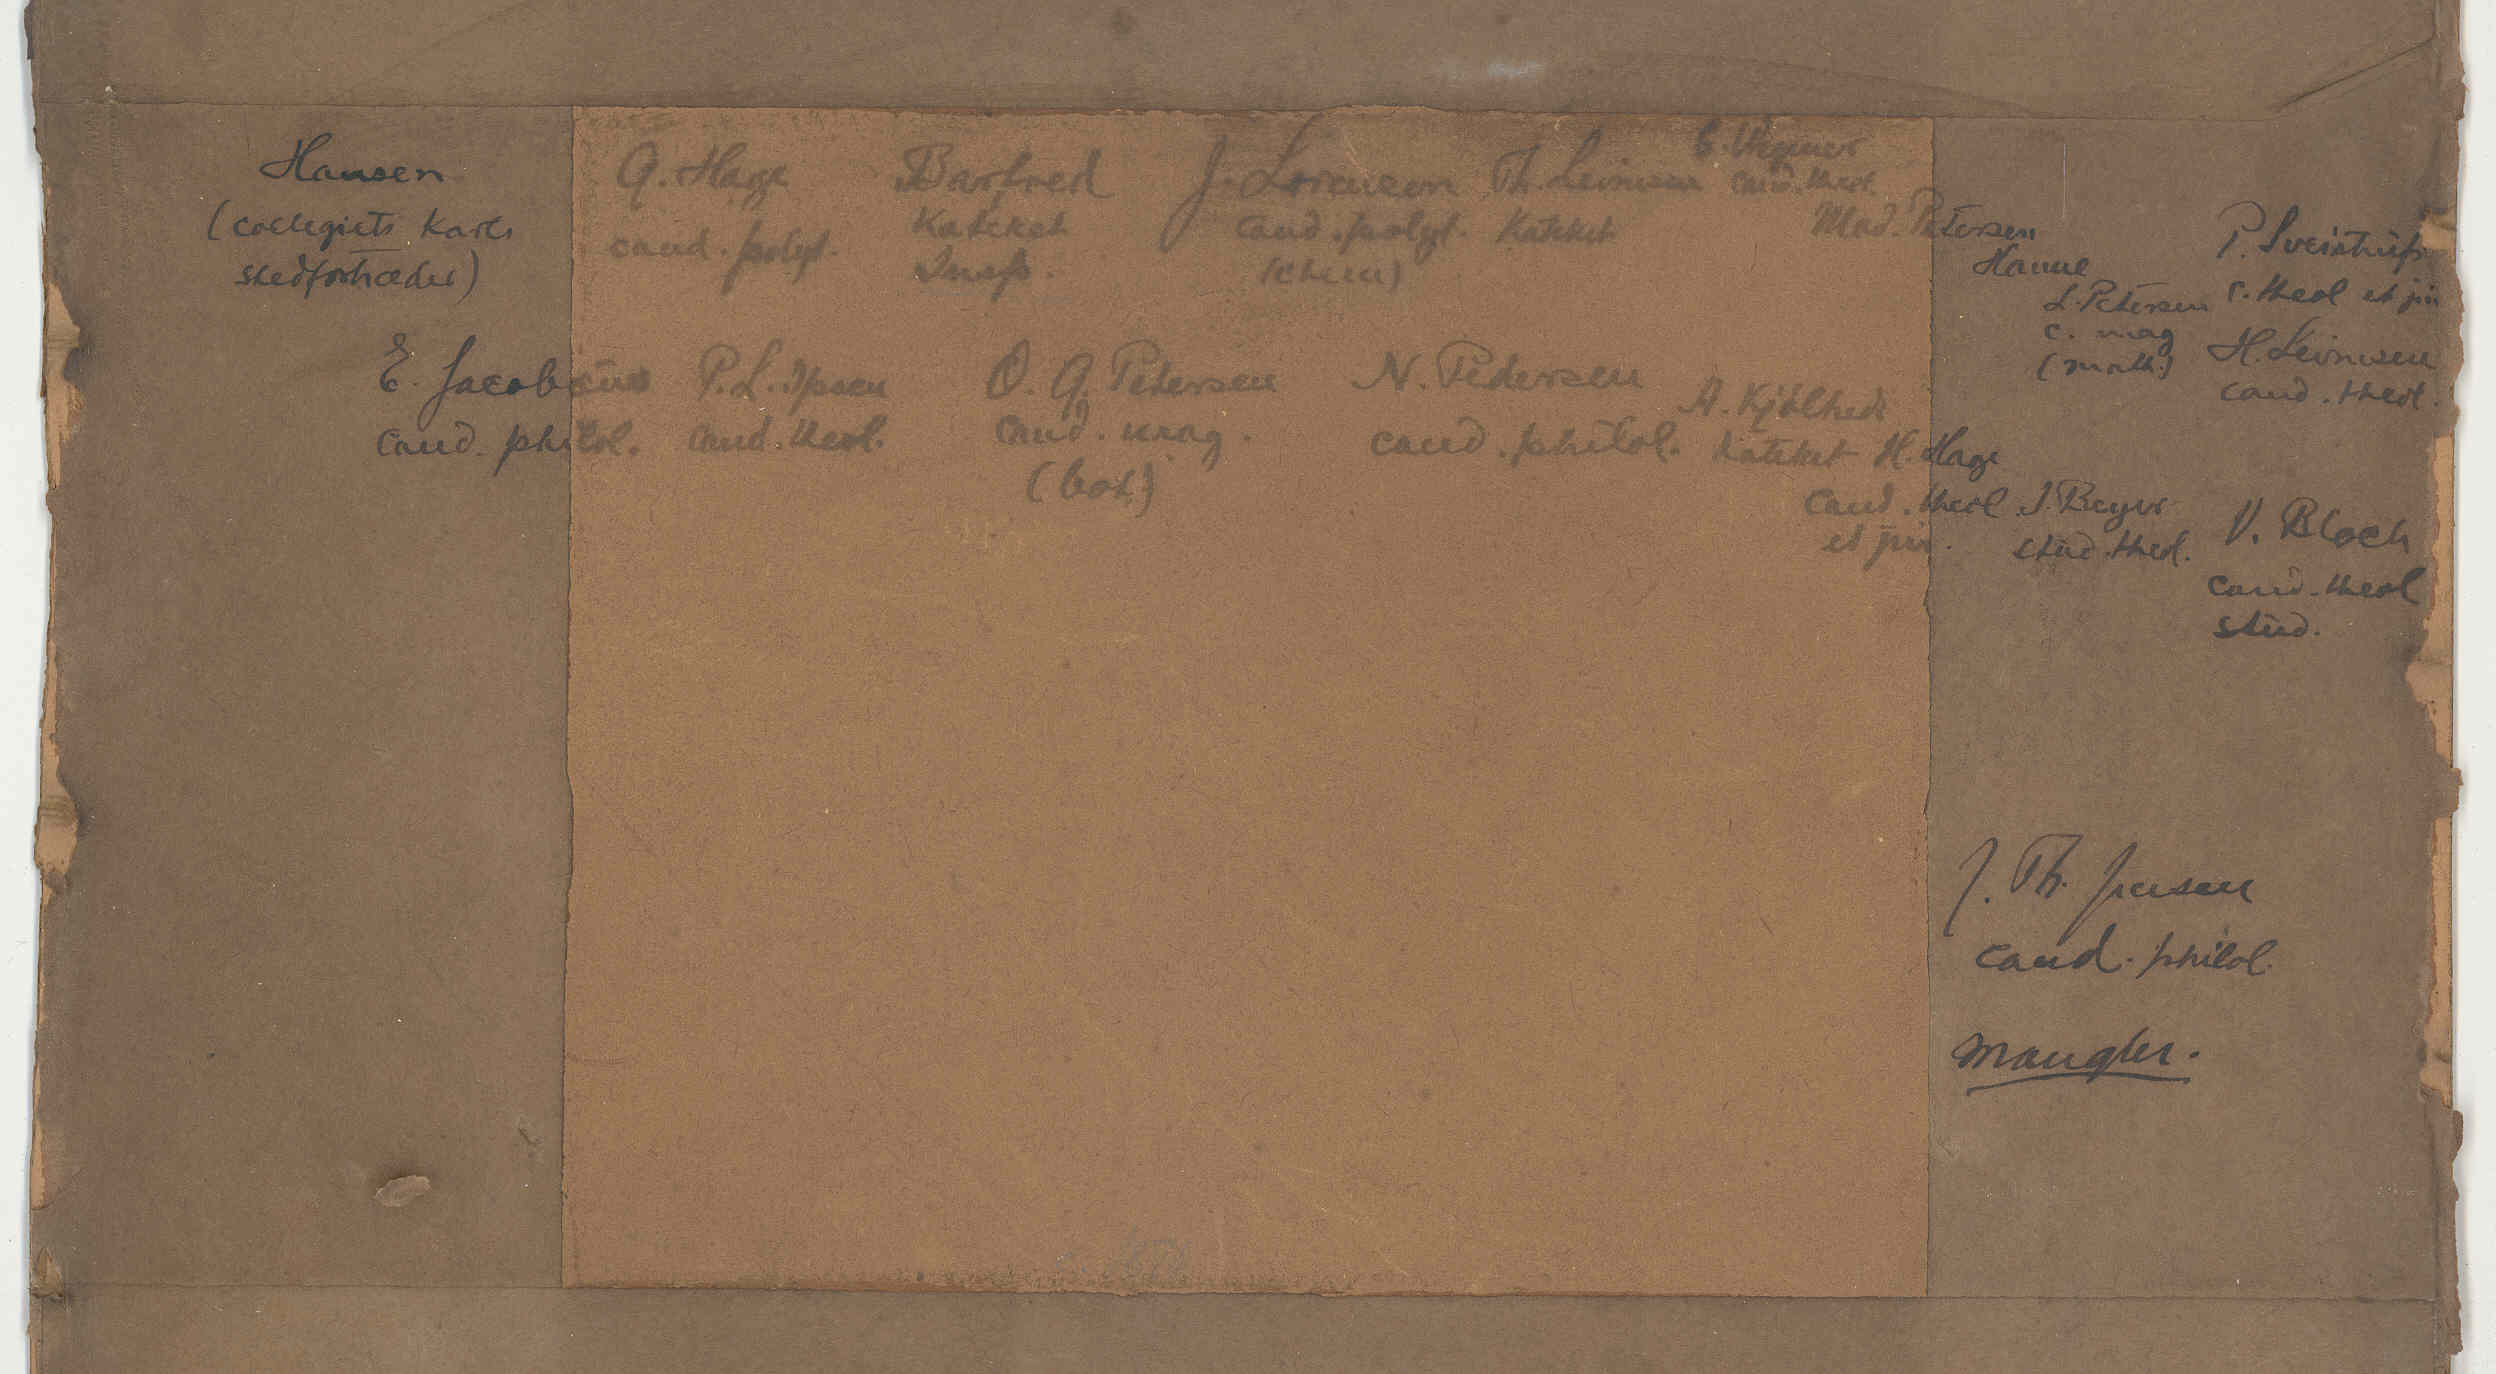 Hansen
(collegiets karls
stedfortræder)
G. Hage
cand. polyt.
Barfred
Kateket
Insp.
J. Lorenzen
cand. polyt.
(chem)
Th. Levinsen
Kateket
S. Wegener
cand. theol.
Mad. Petersen
Hanne
L. Petersen
c. mag
(math.)
P. Sveistrup
c. theol et jur
H. Levinsen
cand. theol.
E. Jacobsen
cand. philol.
P. L. Ipsen
cand. theol.
O. G. Petersen
cand. mag.
(bot.)
N. Pedersen
cand. philol.
A. Kjölhede
kateket
H. Hage
cand. theol
et jur.
J. Beyer
stud. theol.
V. Bloch
cand. theol
stud.
J. Th. Jensen
cand. philol.
mangler.